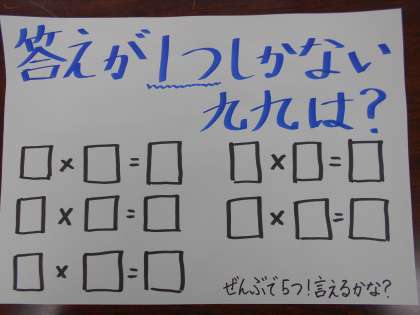 答えが1つしかない
九九は?
□×□=□
□×□=□
□×□=□
□×□=□
□×□=□
ぜんぶで5つ!言えるかな?